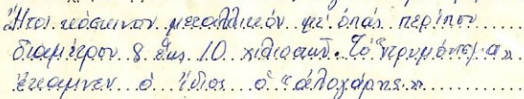 Ἤτοι κόσκινον μεταλλικόν μέ ὀπάς περίπου
διαμέτρου 8 ἕως 10 χιλιοστῶν. Τό "δρυμόνισμα»
ἔκαμνεν ὁ ἴδιος ὁ "ἁλογάρης».